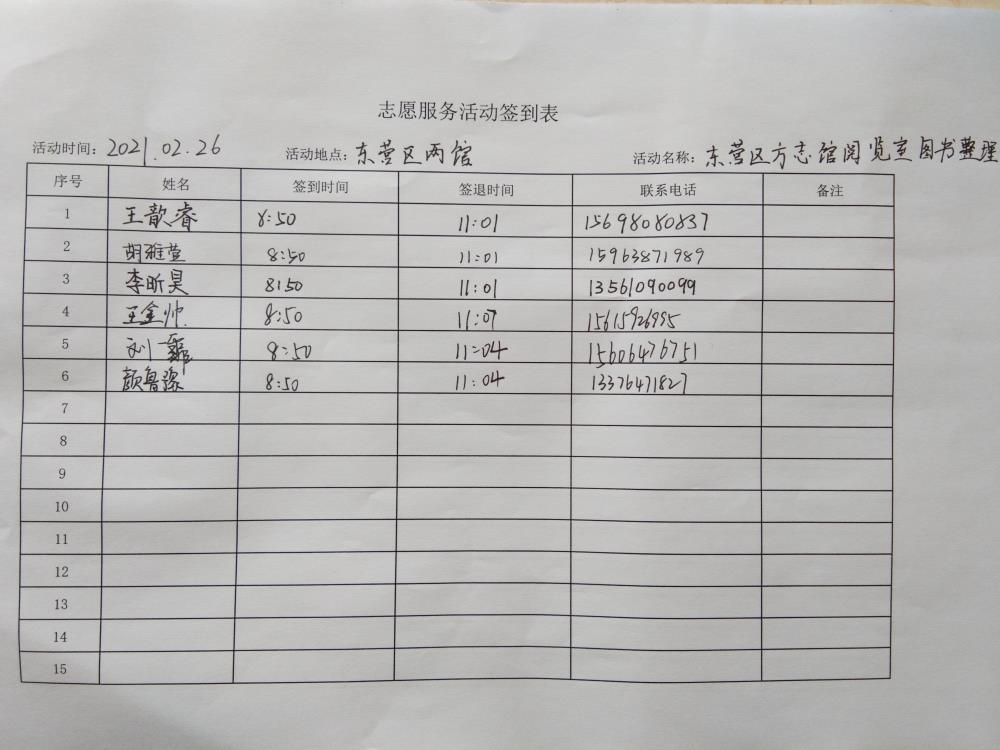 志愿服务活动签到表
活动时间：2021.02.26 活动地点：东营区两馆 活动名称：东营区方志馆阅览室图书整理
序号 姓名 签到时间 签退时间 联系电话 备注
1 王歆睿 8:50 11:01 15698080837
2 胡雅萱 8:50 11:01 15963871989
3 李昕昊 8:50 11:01 13561090099
4 王金帅 8:50 11:07 15615926995
5 刘一 8:50 11:04 15606476751
6 颜鲁豫 8:50 11:04 13376471827
7
8
9
10
11
12
13
14
15